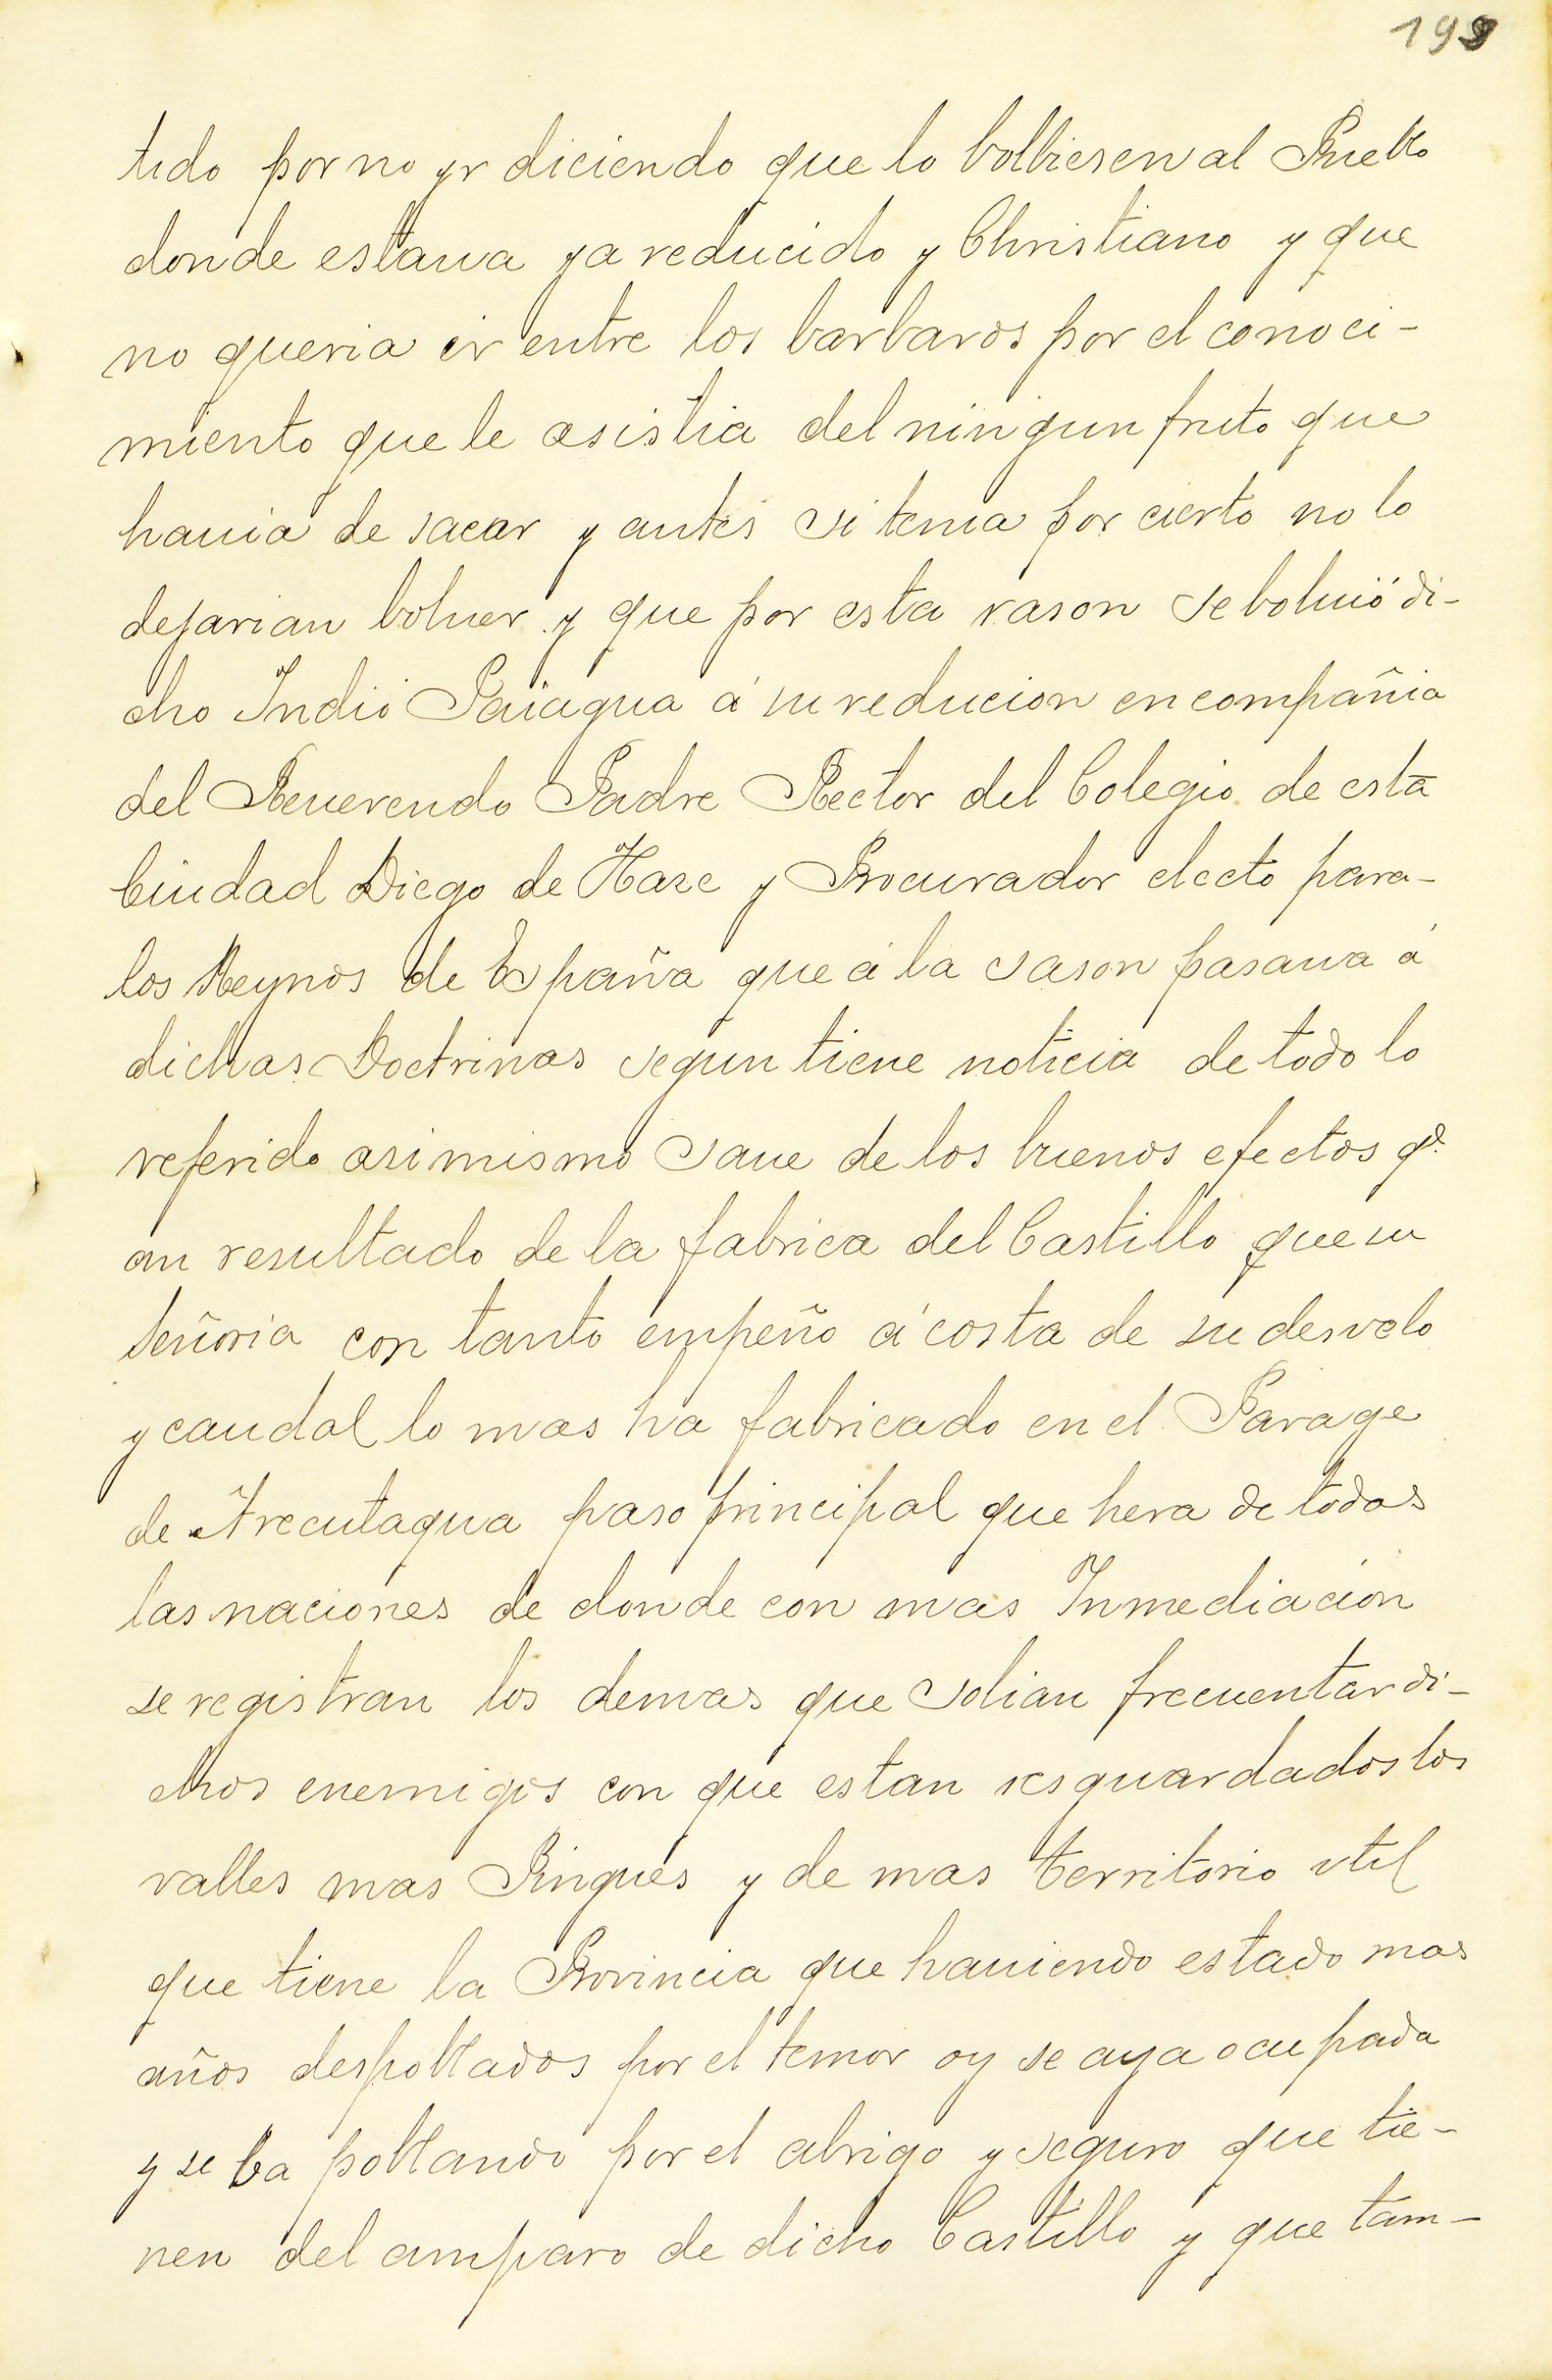 199
tido por no yr diciendo que lo bolbiesen al Pueblo
donde estaua ya reducido y Christiano y que
no queria ir entre los barbaros por el conoci-
miento que le asistia del ningun fruto que
hauia de sacar y antes si tenia por cierto no lo
dejarian boluer y que por esta rason se boluió di-
cho Indio Paiagua á su reducion en compañia
del Reuerendo Padre Rector del Colegio de esta
Ciudad Diego de Haze y Procurador electo para-
los Reynos de España que á la sason pasaua á
dichas Doctrinas segun tiene noticia de todo lo
referido asimismo saue de los buenos efectos q.e
an resultado de la fabrica del Castillo que su
Señoria con tanto empeño á costa de su desvelo
y caudal lo mas ha fabricado en el Parage
de Arecutagua paso principal que hera de todas
las naciones de donde con mas Inmediacion
se registran los demas que solian frecuentar di-
chos enemigos con que estan resguardados los
valles mas Pingues y de mas territorio vtil
que tiene la Provincia que hauiendo estado mas
años despoblados por el temor oy se aya ocupada
y se ba poblando por el abrigo y seguro que tie-
nen del amparo de dicho Castillo y que tam-